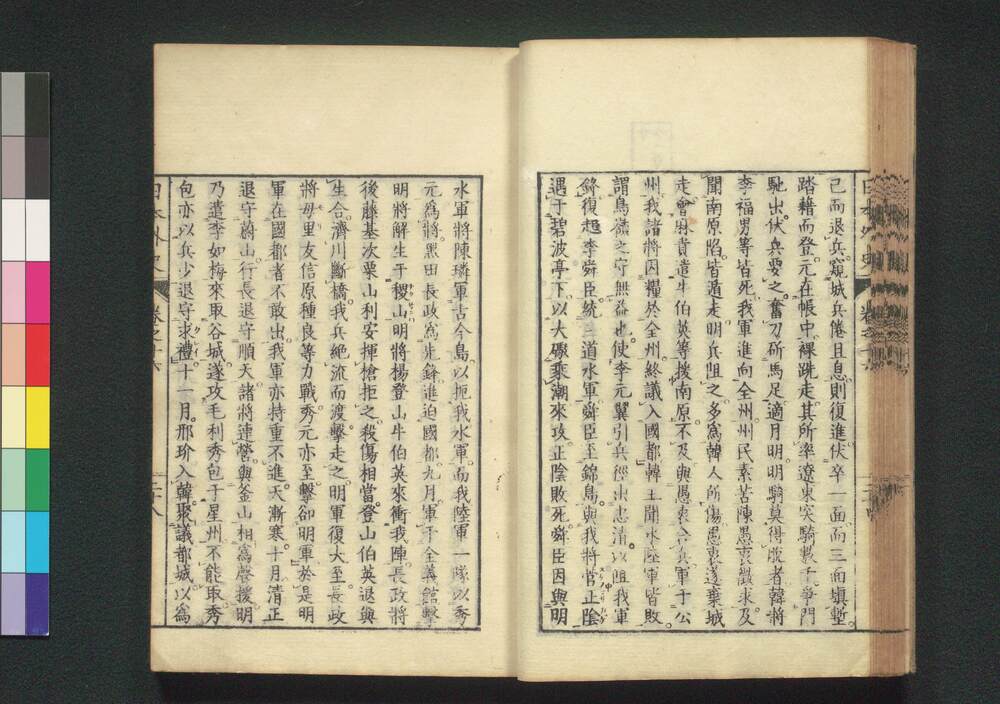 已而退兵窺城兵倦且息則復進伏卒一面而三面塡塹
踏藉而登。元在帳中。裸跣走。其所率遼東突騎數千爭門
馳出。伏兵要之。奮刀斫馬足。適月明。明騎莫得脫者。韓將
李福男等皆死。我軍進向全州。州民素苦陳愚衷徵求。及
聞南原陷。皆遁走。明兵阻之。多爲韓人所傷。愚衷遂棄城
走。會麻貴遣牛伯英等援南原。不及。與愚衷合兵。軍于公
州。我諸將因糧於全州。終議入國都。韓王聞水陸軍皆敗
謂鳥嶺之守無益也。使李元翼引兵徑出忠淸。以阻我軍
鋒。復起李舜臣。統三道水軍。舜臣至錦島。與我將菅正陰
遇于碧波亭下。以大礮乘潮來攻。正陰敗死。舜臣因與明
水軍將陳璘軍古今島。以扼我水軍。而我陸軍一隊以秀
元爲將。黑田長政爲先鋒。進迫國都。九月。軍于全義館。擊
明將解生于稷山。明將揚登山牛伯英來衝我陣。長政將
後藤基次栗山利安揮槍拒之。殺傷相當。登山伯英退。與
生合。濟川斷橋。我兵絕流而渡。擊走之。明軍復大至。長政
將毋里友信原種良等力戰。秀元亦至。擊卻明軍。於是明
軍在國都者不敢出。我軍亦持重不進。天漸寒。十月。淸正
退守蔚山。行長退守順天。諸將連營。與釜山相爲聲援。明
乃遣李如梅來取谷城。遂攻毛利秀包于星州。不能取。秀
包亦以兵少退守求禮。十一月。邢玠入韓。聚議都城。以爲
日本外史
卷之十六
二十八